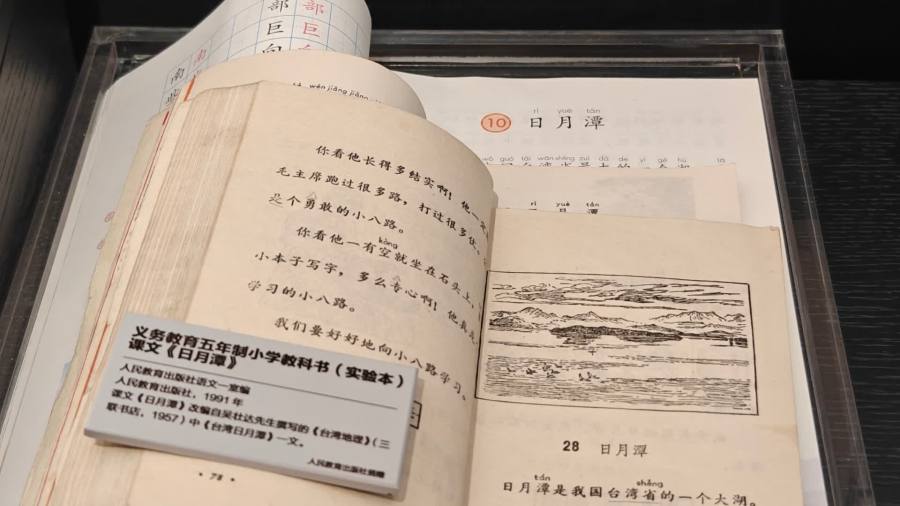 部 部
巨
南 南
wén jiāng jiāng
rì yuè tán
10 日月潭
wǒ guó tái wān shěng zuì dà de yí gè hú
rì yuè tán
日 月 潭
你看他长得多结实啊！他一
毛主席跑过很多路，打过很多仗，
是个勇敢的小八路。
kòng
你看他一有空就坐在石头上，
小本子写字，多么专心啊！他真是
学习的小八路。
我们要好好地向小八路学习。
· 78 ·
28 日月潭
tán shěng
日月潭是我国台湾省的一个大湖。
义务教育五年制小学教科书（实验本）
课文《日月潭》
人民教育出版社语文一室编
人民教育出版社，1991年
课文《日月潭》改编自吴壮达先生撰写的《台湾地理》（三
联书店，1957）中《台湾日月潭》一文。
人民教育出版社捐赠